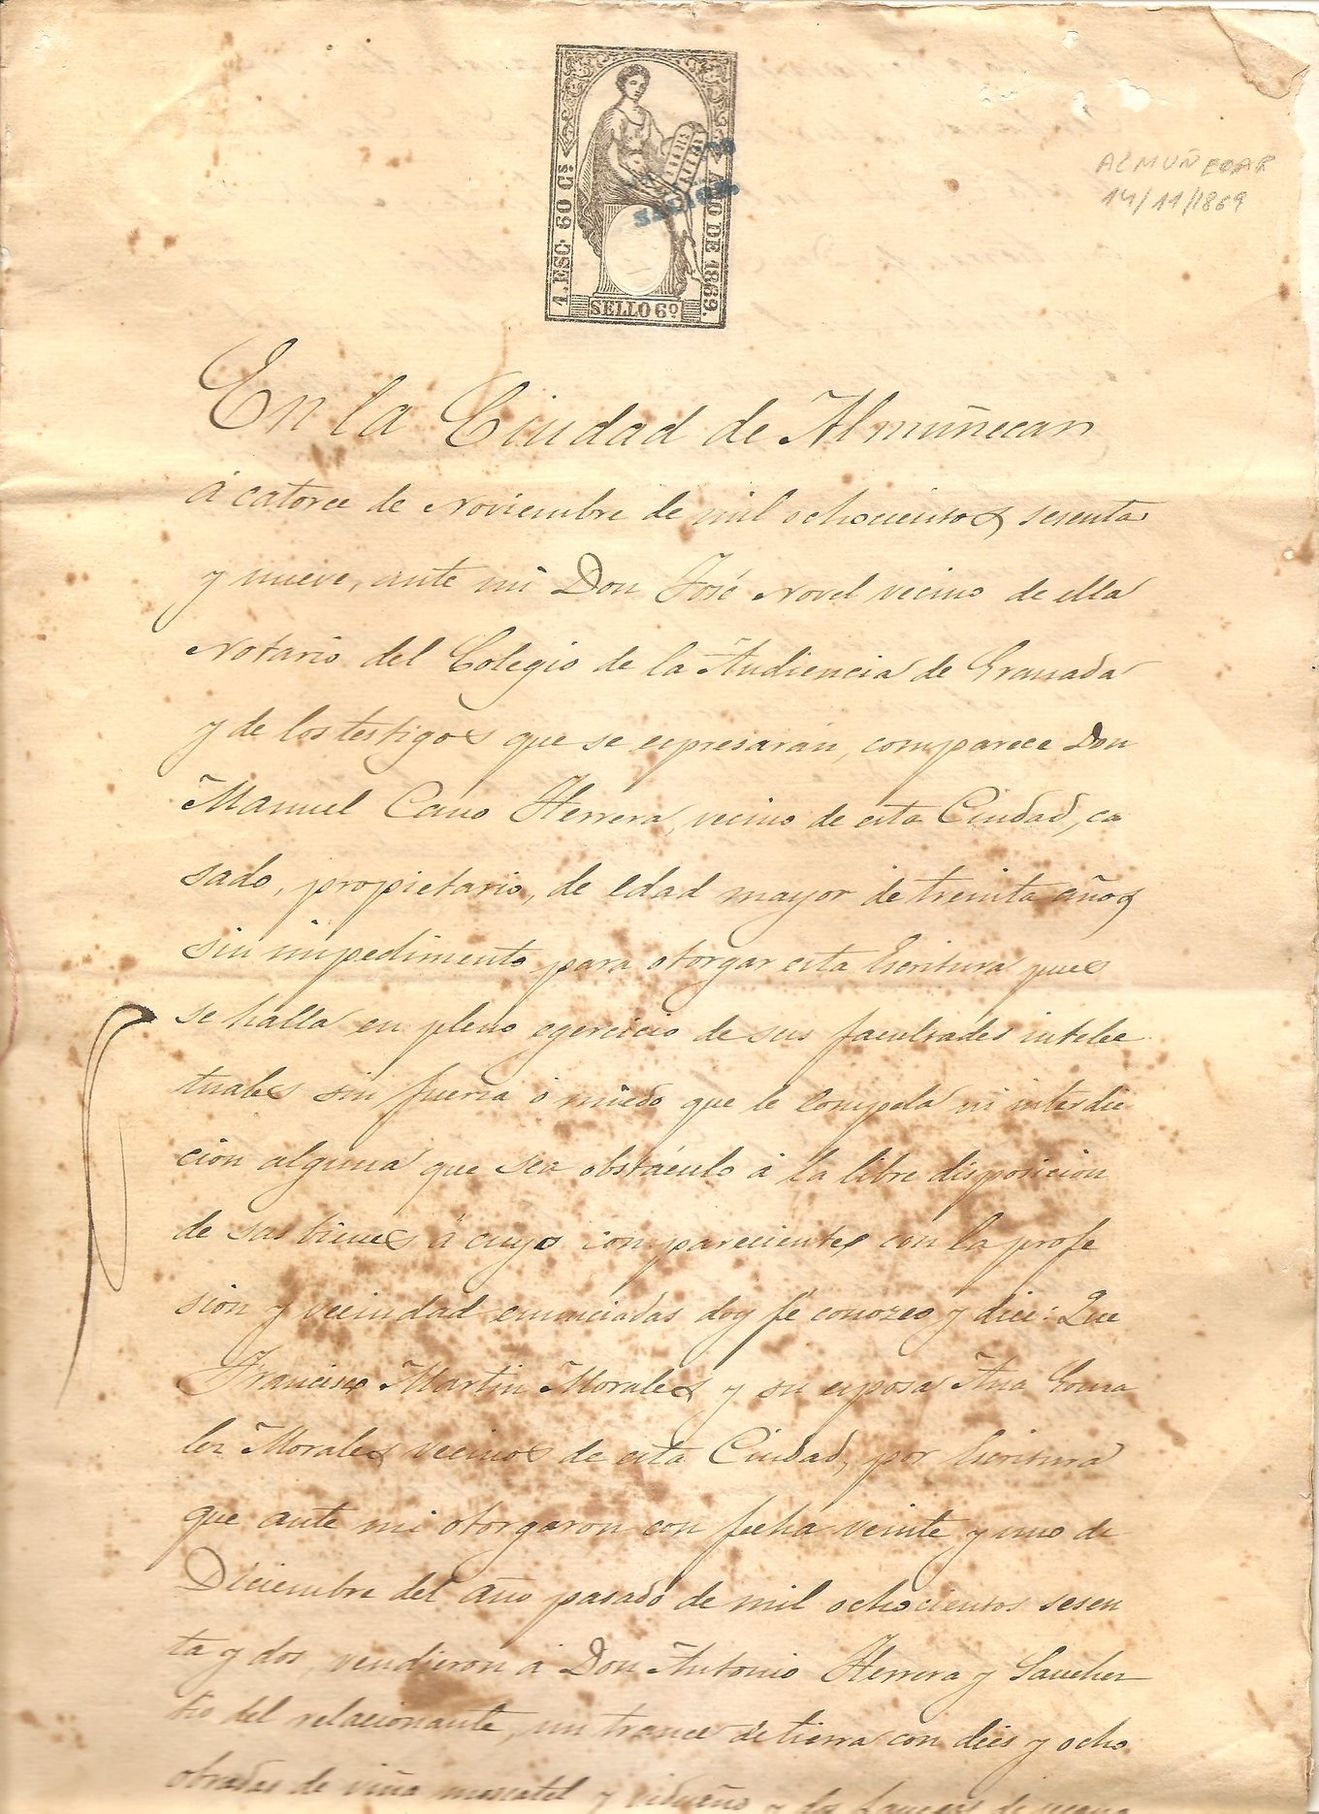 1. ESC. 60 Cs
AÑO DE 1869.
SELLO 6º
ALMUÑECAR
14/11/1869
En la Ciudad de Almuñecar
á catorce de Noviembre de mil ochocientos sesenta
y nueve, ante mi Don José Novel vecino de ella
Notario del Colegio de la Audiencia de Granada
y de los testigos que se espresarán, comparece Don
Manuel Cano Herrera, vecino de esta Ciudad, ca
sado, propietario, de edad mayor de treinta años
sin impedimento para otorgar esta Escritura pues
se halla en pleno egercicio de sus facultades intelec
tuales sin fuerza ó miedo que le compela ni interdic
cion alguna que sea obstáculo á la libre disposicion
de sus bienes á cuyo compareciente, con la profe
sion y vecindad enunciadas doy fé conozco y dice: Que
Francisco Martin Morales y su esposa Ana Gonza
lez Morales vecinos de esta Ciudad, por Escritura
que ante mi otorgaron con fecha veinte y uno de
Diciembre del año pasado de mil ochocientos sesen
ta y dos, vendieron á Don Antonio Herrera y Sanchez
tio del relacionante, un trance de tierra con diez y ocho
obradas de viña moscatel y viduño y dos fanegas de